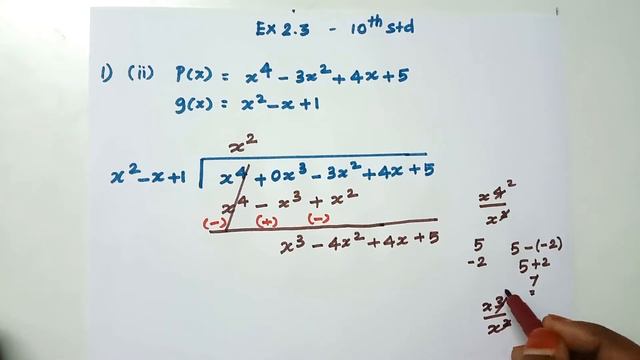 Ex 2.3 - 10th std
1) (ii) P(x) = x⁴ - 3x² + 4x + 5
g(x) = x² - x + 1
x²
x² - x + 1 √ x⁴ + 0x³ - 3x² + 4x + 5
x⁴ - x³ + x²
(-) (+) (-)
x³ - 4x² + 4x + 5
x⁴ ²
x²
5 5 - (-2)
-2 5 + 2
7
=
x³
x²